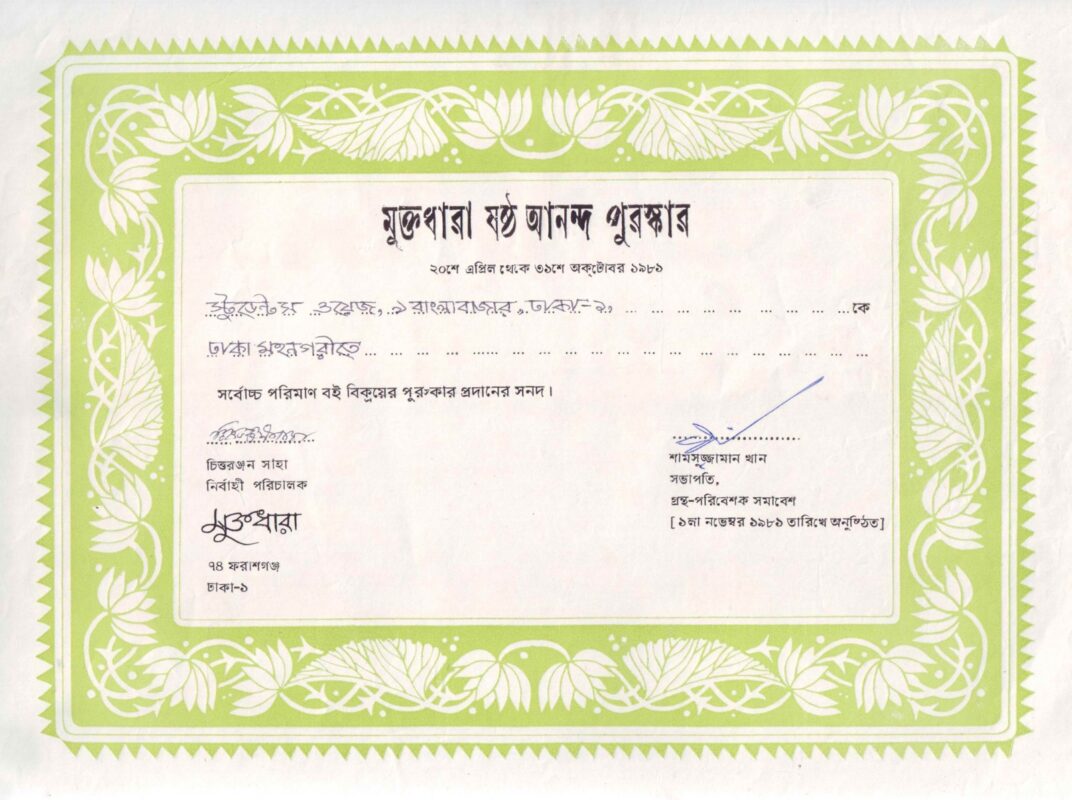 মুক্তধারা ষষ্ঠ আনন্দ পুরস্কার
২০শে এপ্রিল থেকে ৩১শে অক্টোবর ১৯৮১
স্টুডেন্টস ওয়েজ, ৯ বাংলাবাজার, ঢাকা-১, ... ... ... ... ... ... ... ...কে
ঢাকা মহানগরীতে... ... ... ... ...... ... ... ... ... ... ... ... ... ... ...
সর্বোচ্চ পরিমাণ বই বিক্রয়ের পুরস্কার প্রদানের সনদ।
চিত্তরঞ্জন সাহা
নির্বাহী পরিচালক
মুক্তধারা
৭৪ ফরাশগঞ্জ
ঢাকা-১
শামসুজ্জামান খান
সভাপতি,
গ্রন্থ-পরিবেশক সমাবেশ
[ ১লা নভেম্বর ১৯৮১ তারিখে অনুষ্ঠিত]